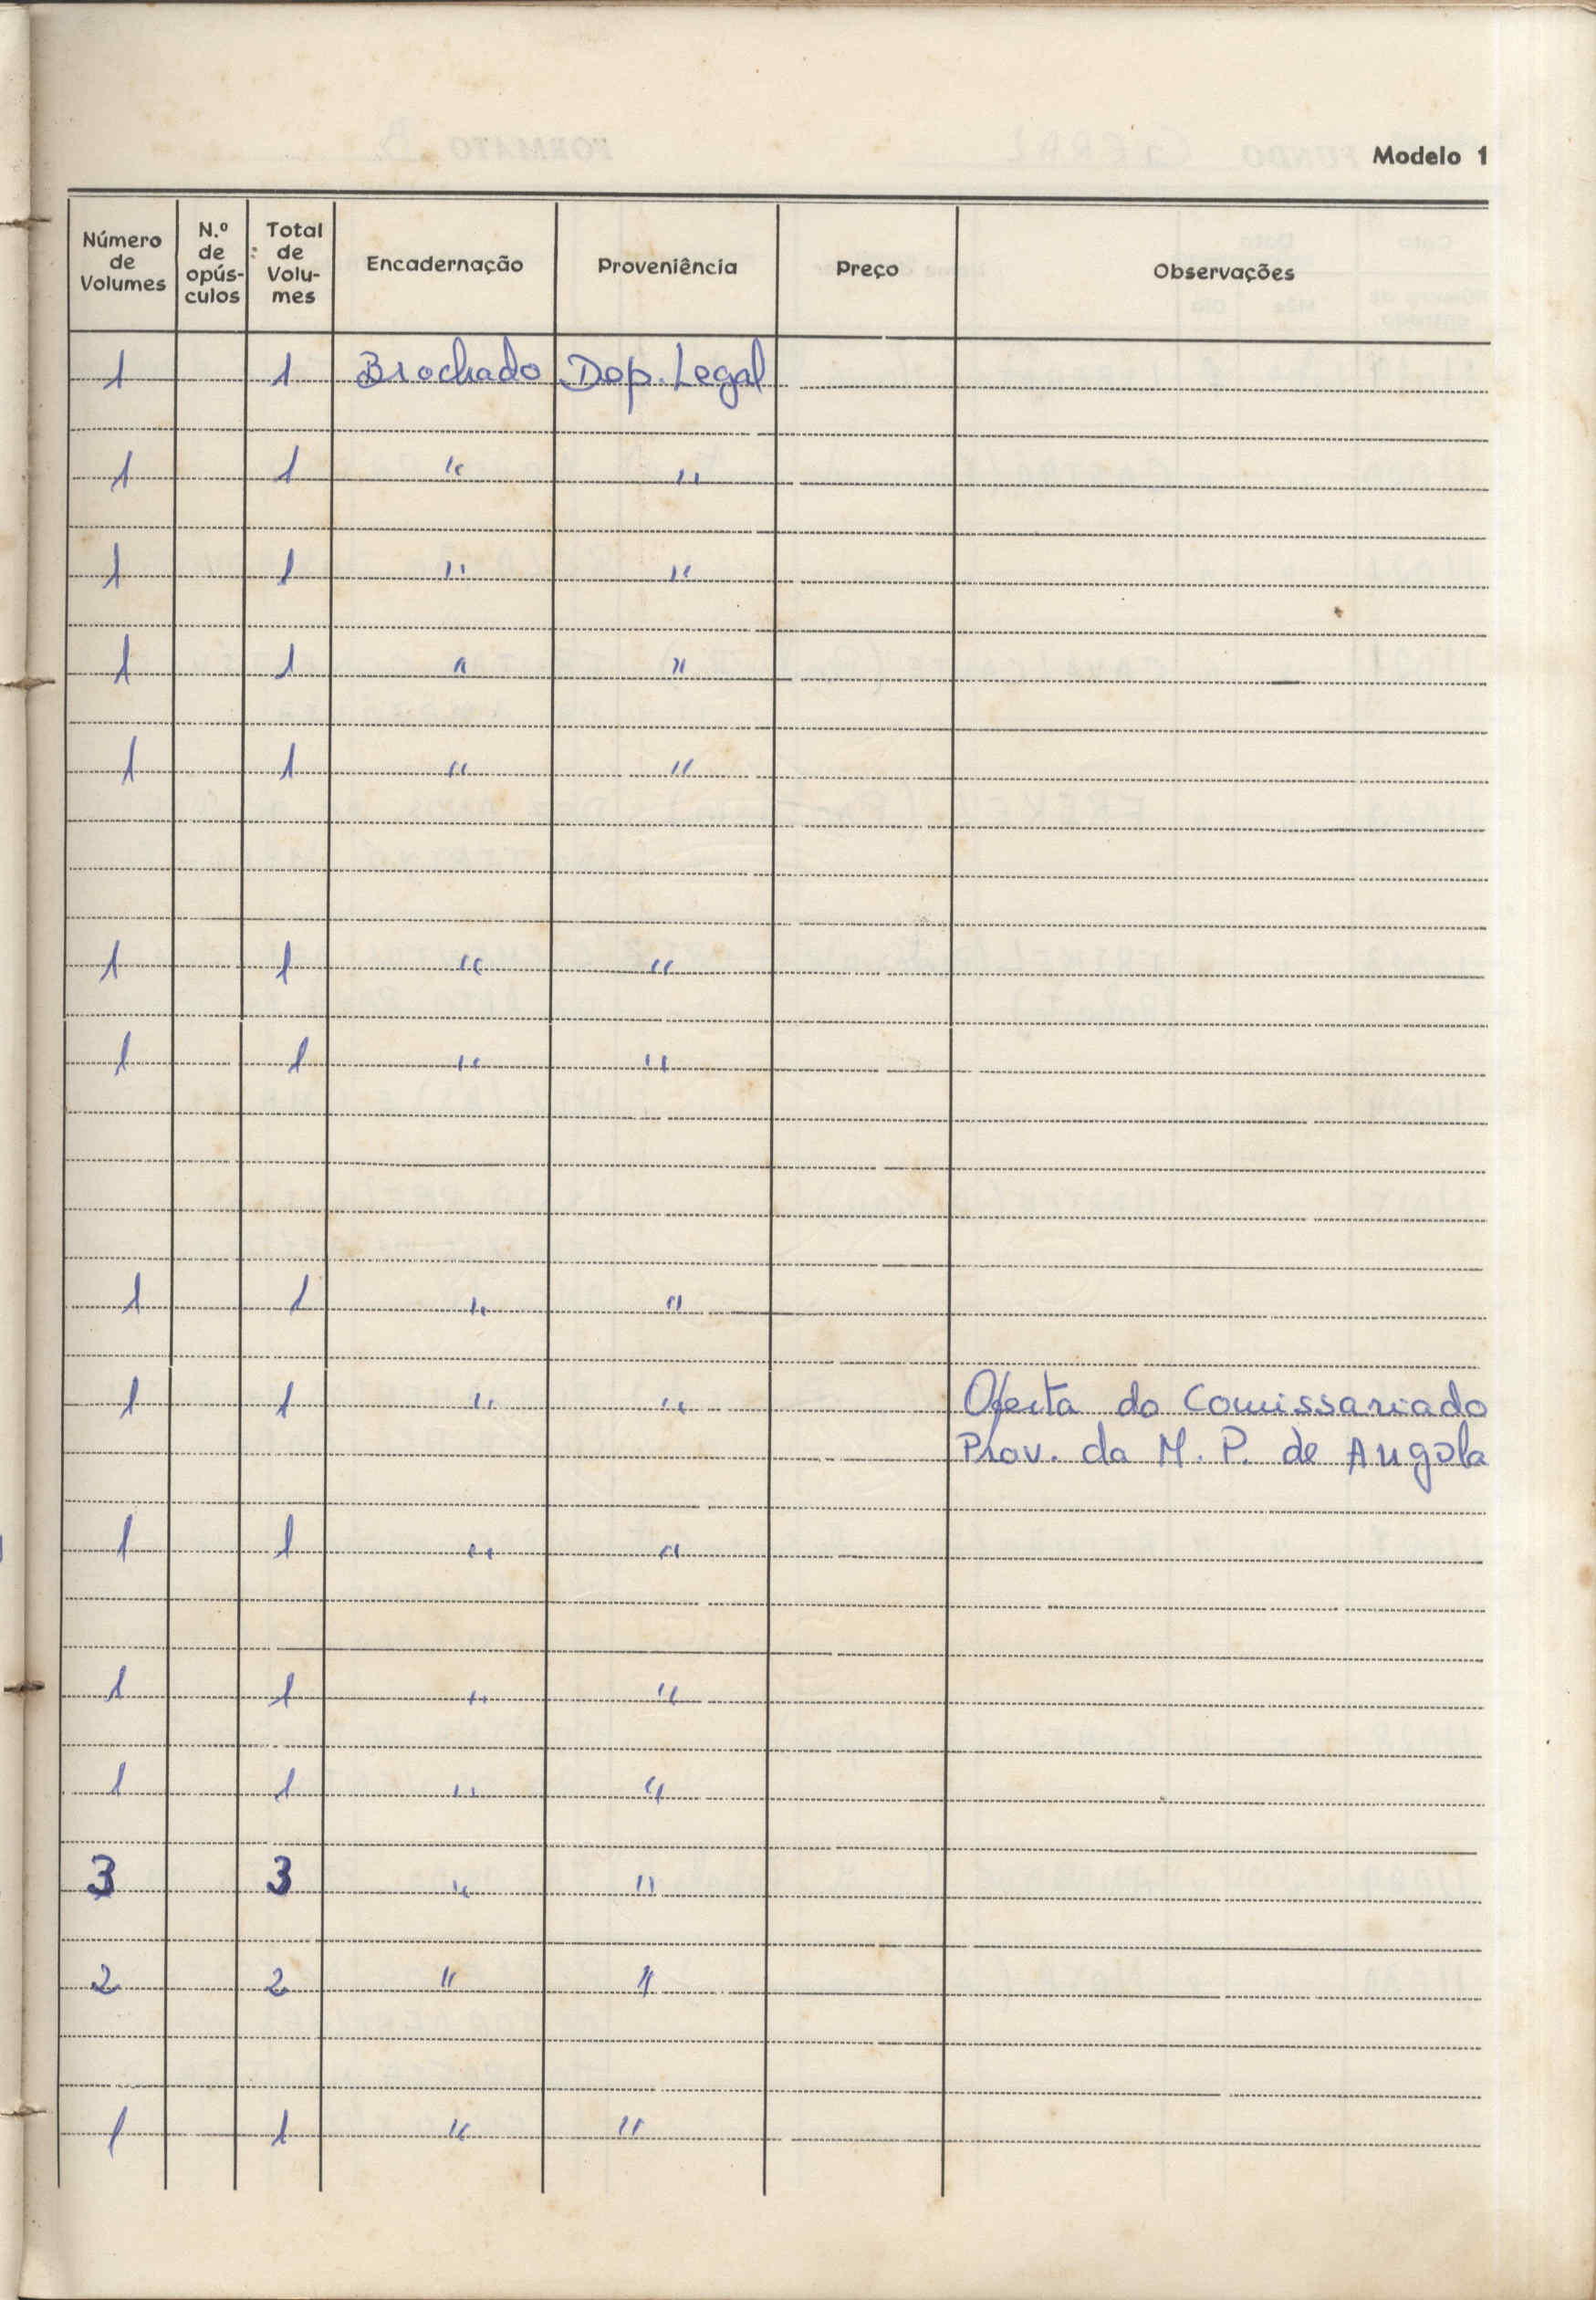 Modelo 1
Número de Volumes N.º de opús-culos Total de Volu-mes Encadernação Proveniência Preço Observações
1 1 Brochado Dep. Legal
1 1 " "
1 1 " "
1 1 " "
1 1 " "
1 1 " "
1 1 " "
1 1 " "
1 1 " " Oferta do Comissariado
Prov. da M. P. de Angola
1 1 " "
1 1 " "
1 1 " "
3 3 " "
2 2 " "
1 1 " "